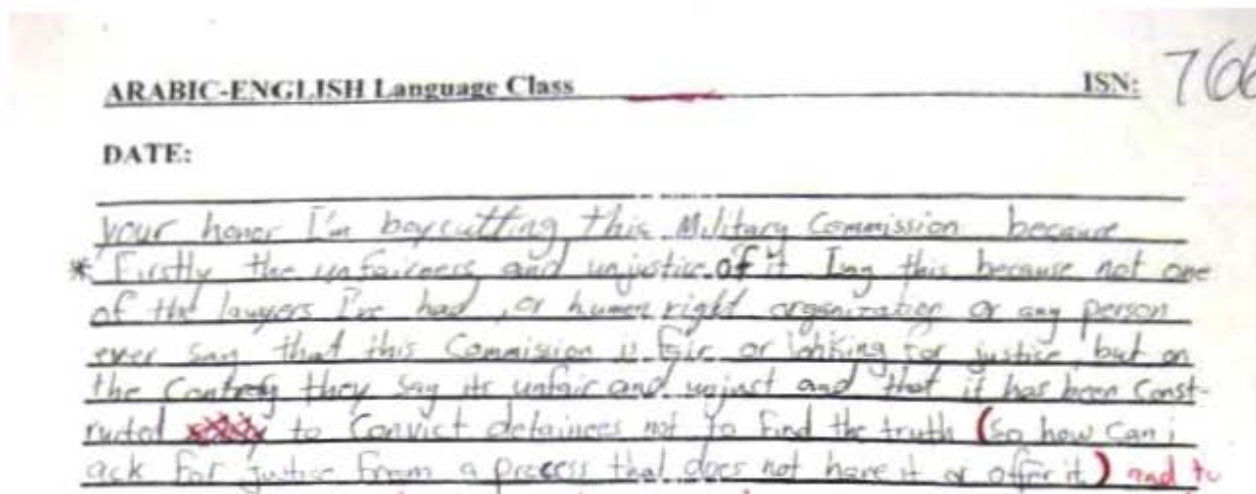 ARABIC-ENGLISH Language Class ISN: 766
DATE:
your honor I'm boycutting this Military Commission because
* Firstly the unfairness and unjustice of it I say this because not one
of the lawyers I've had, or human right organization or any person
ever say that this Commission is fair or looking for justice, but on
the Contrary they say its unfair and unjust and that it has been Const-
ructed to Convict detainees not to find the truth (so how can i
ask for justice from a process that does not have it or offer it) and to